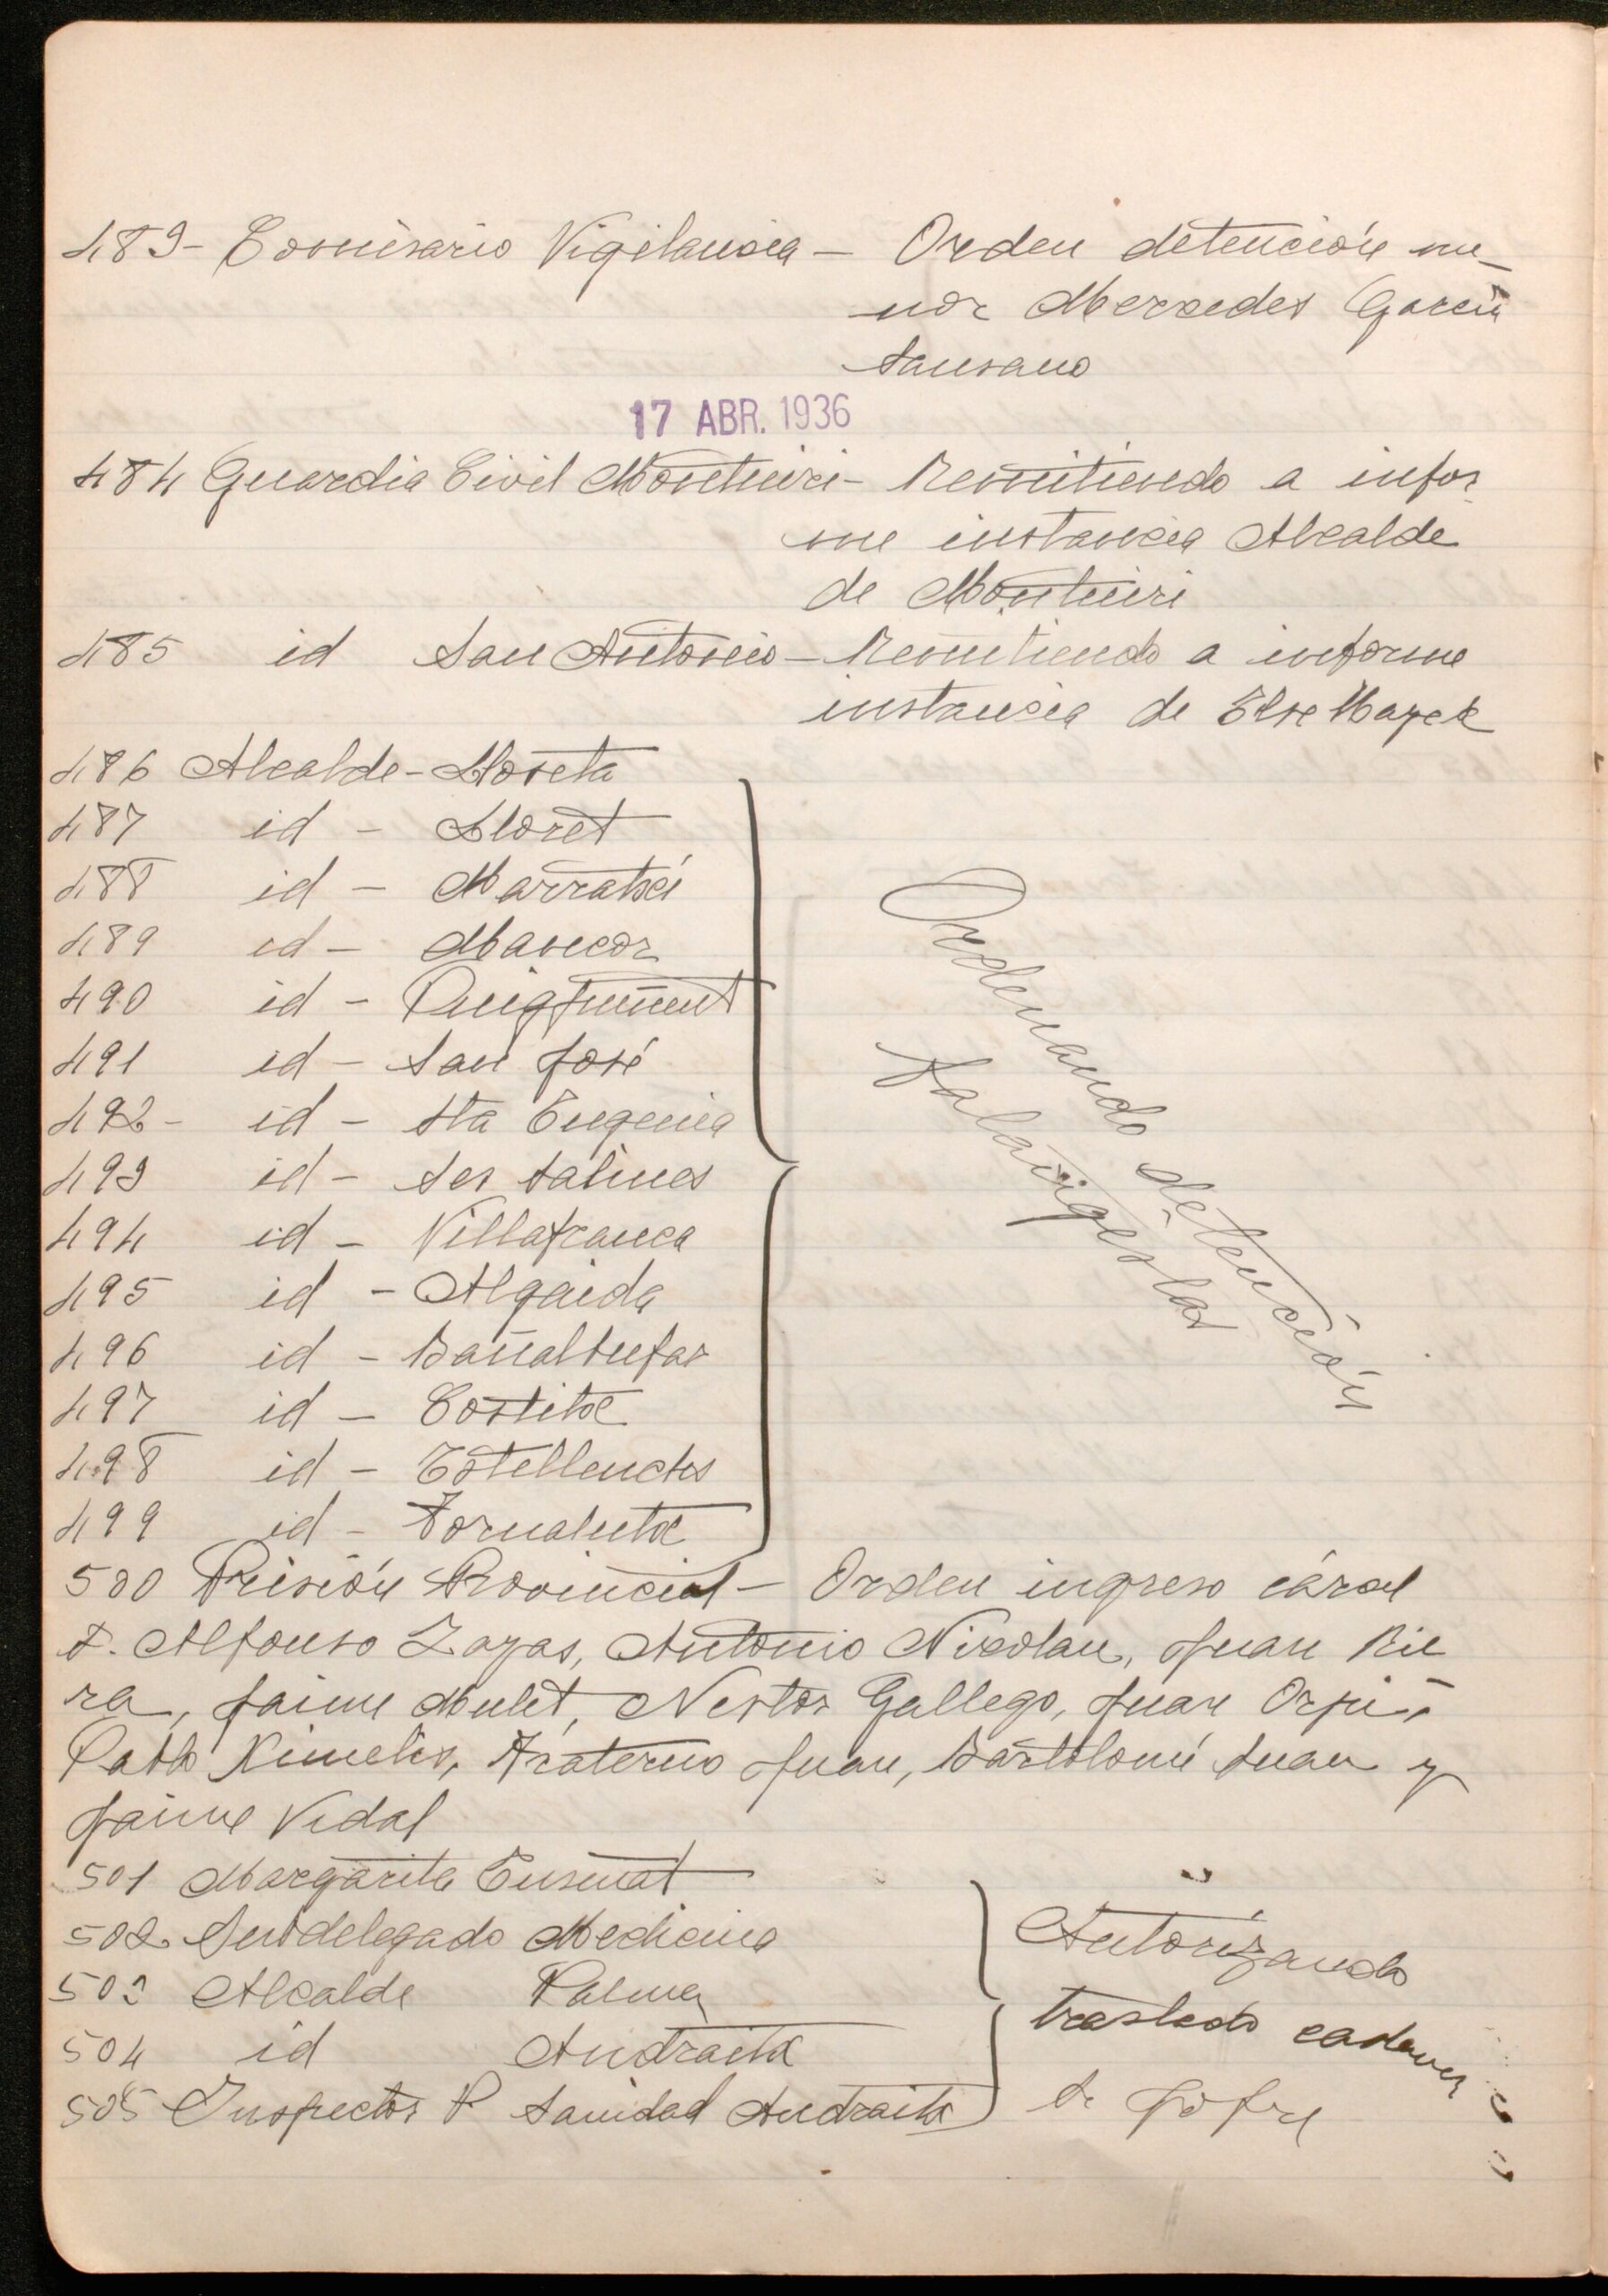 483- Comisario Vigilancia - Orden detención me-
nor Mercedes García
Sansano
17 ABR. 1936
484 Guardia Civil Montuiri - Remitiendo a infor
me instancia Alcalde
de Montuiri
485 id San Antonio - Remitiendo a informe
instancia de Else
486 Alcalde - Lloseta
487 id - Lloret
488 id - Marratxi
489 id - Manacor
490 id - Puigpuñent
491 id - San José
492 - id - Sta Eugenia
493 id - Ses Salines
494 id - Villafranca
495 id - Algaida
496 id - Bañalbufar
497 id - Costitx
498 id - Estellenchs
499 id - Fornalutx
Ordenando detención
falangistas
500 Prisión Provincial - Orden ingreso cárcel
D. Alfonso Zayas, Antonio Nicolau, Juan Rie
ra, Jaime Mulet, Nestor Gallego, Juan
Pablo Ximelis, Fraterno Juan, Bartolomé Juan y
Jaime Vidal
501 Margarita Enseñat
502 Subdelegado Medicina
503 Alcalde Palma
504 id Andraitx
505 Inspector P Sanidad Andraitx
Autorizando
traslado cadaver
Sr Jofre